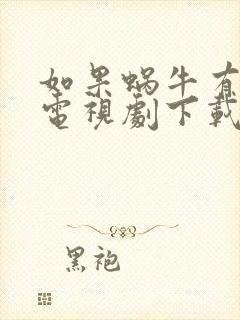 如果蝸牛有
電視劇下載
黑袍